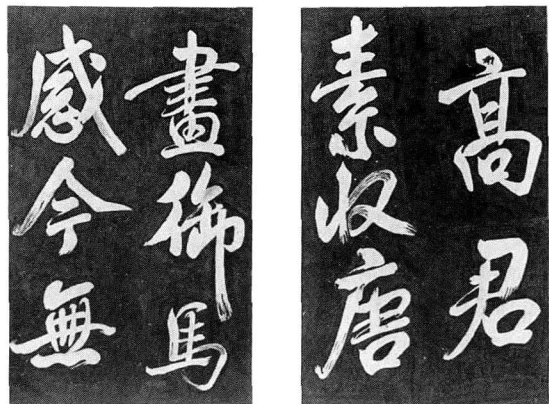 高君
素收唐
畫御馬
感今無